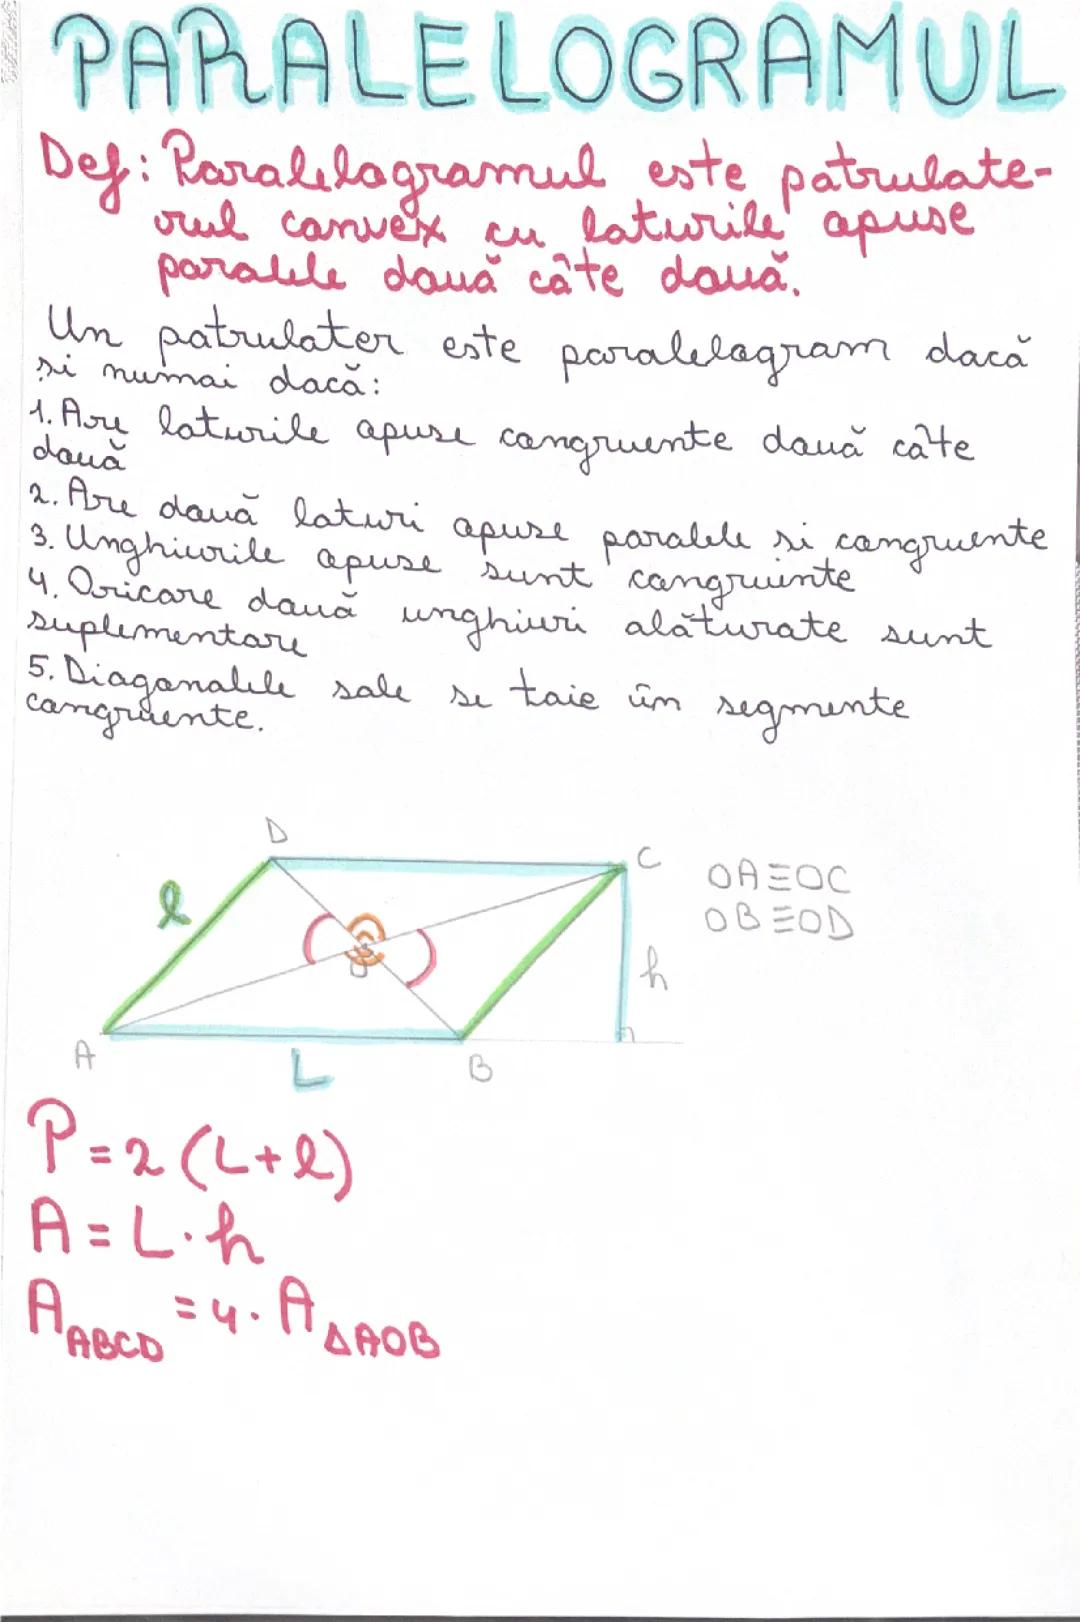 PARALELOGRAMUL
Def: Paralelogramul este patrulate-
rul convex cu laturile opuse
paralele două câte două.
Un patrulater este paralelogram dacă
și numai dacă:
1. Are laturile opuse congruente două câte
două
2. Are două laturi opuse paralele si congruente
3. Unghiurile opuse sunt congruente
4. Oricare două unghiuri alăturate sunt
suplementare
5. Diagonalele sale se taie în segmente
congruente.
D
C
l
OA≡OC
OB≡OD
O
h
A
L
B
P=2(L+l)
A=L·h
A ABCD =4·A ΔAOB